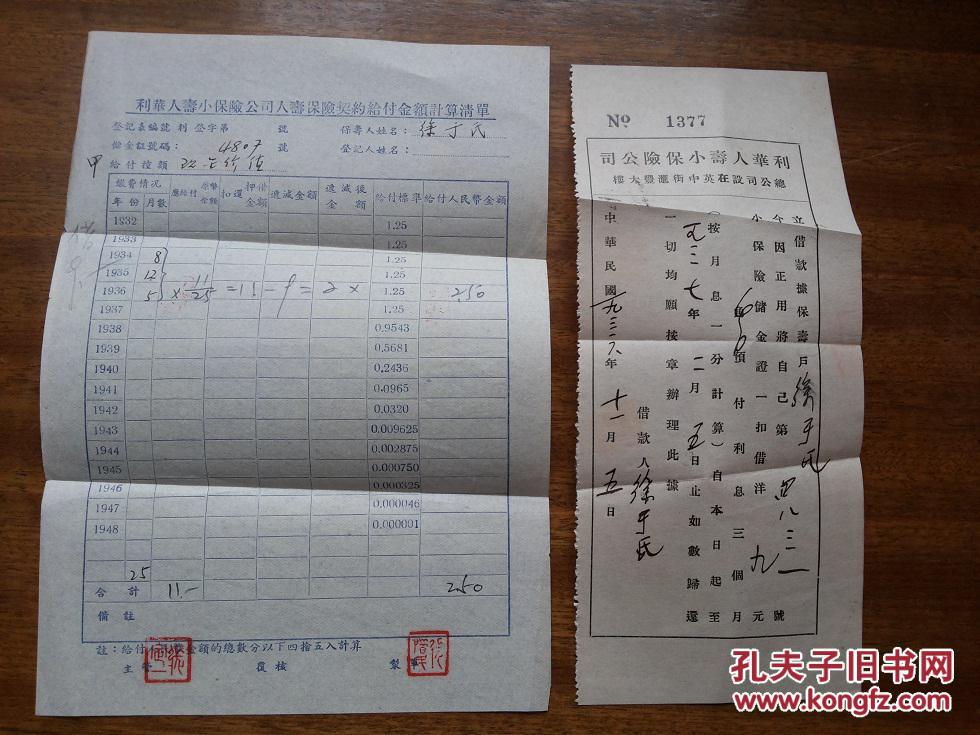 利華人壽小保險公司人壽保險契約給付金額計算清單
登記表編號 利 登字第 號 保壽人姓名：徐于氏
儲金証號碼： 4807 號 登記人姓名：
甲 給付種類
繳費情況 應給付原幣金額 扣還押借金額 遞減金額 遞減後金額 給付標準 給付人民幣金額
年份 月數
1932 1.25
1933 1.25
1934 8 1.25
1935 12 1.25
1936 5 × 11/25 = 11 - 9 = 2 × 1.25 250
1937 1.25
1938 0.9543
1939 0.5681
1940 0.2436
1941 0.0965
1942 0.0320
1943 0.009625
1944 0.002875
1945 0.000750
1946 0.000325
1947 0.000046
1948 0.000001
合計 25 11.- 250
備註
註：給付人民幣金額的總數分以下四捨五入計算
主管 覆核 製單
No. 1377
利華人壽小保險公司
總公司設在英中街滙豐大樓
立借款據保壽戶徐于氏
今因正用將自己第 號
小保險儲金證一扣借洋 九 元
預付利息三個月
（按月息一分計算）自本日起至
年 二月五日止如數歸還
一切均願按章辦理此據
借款人徐于氏
中華民國一九三六年十一月五日
孔夫子旧书网
KONGFZ.COM